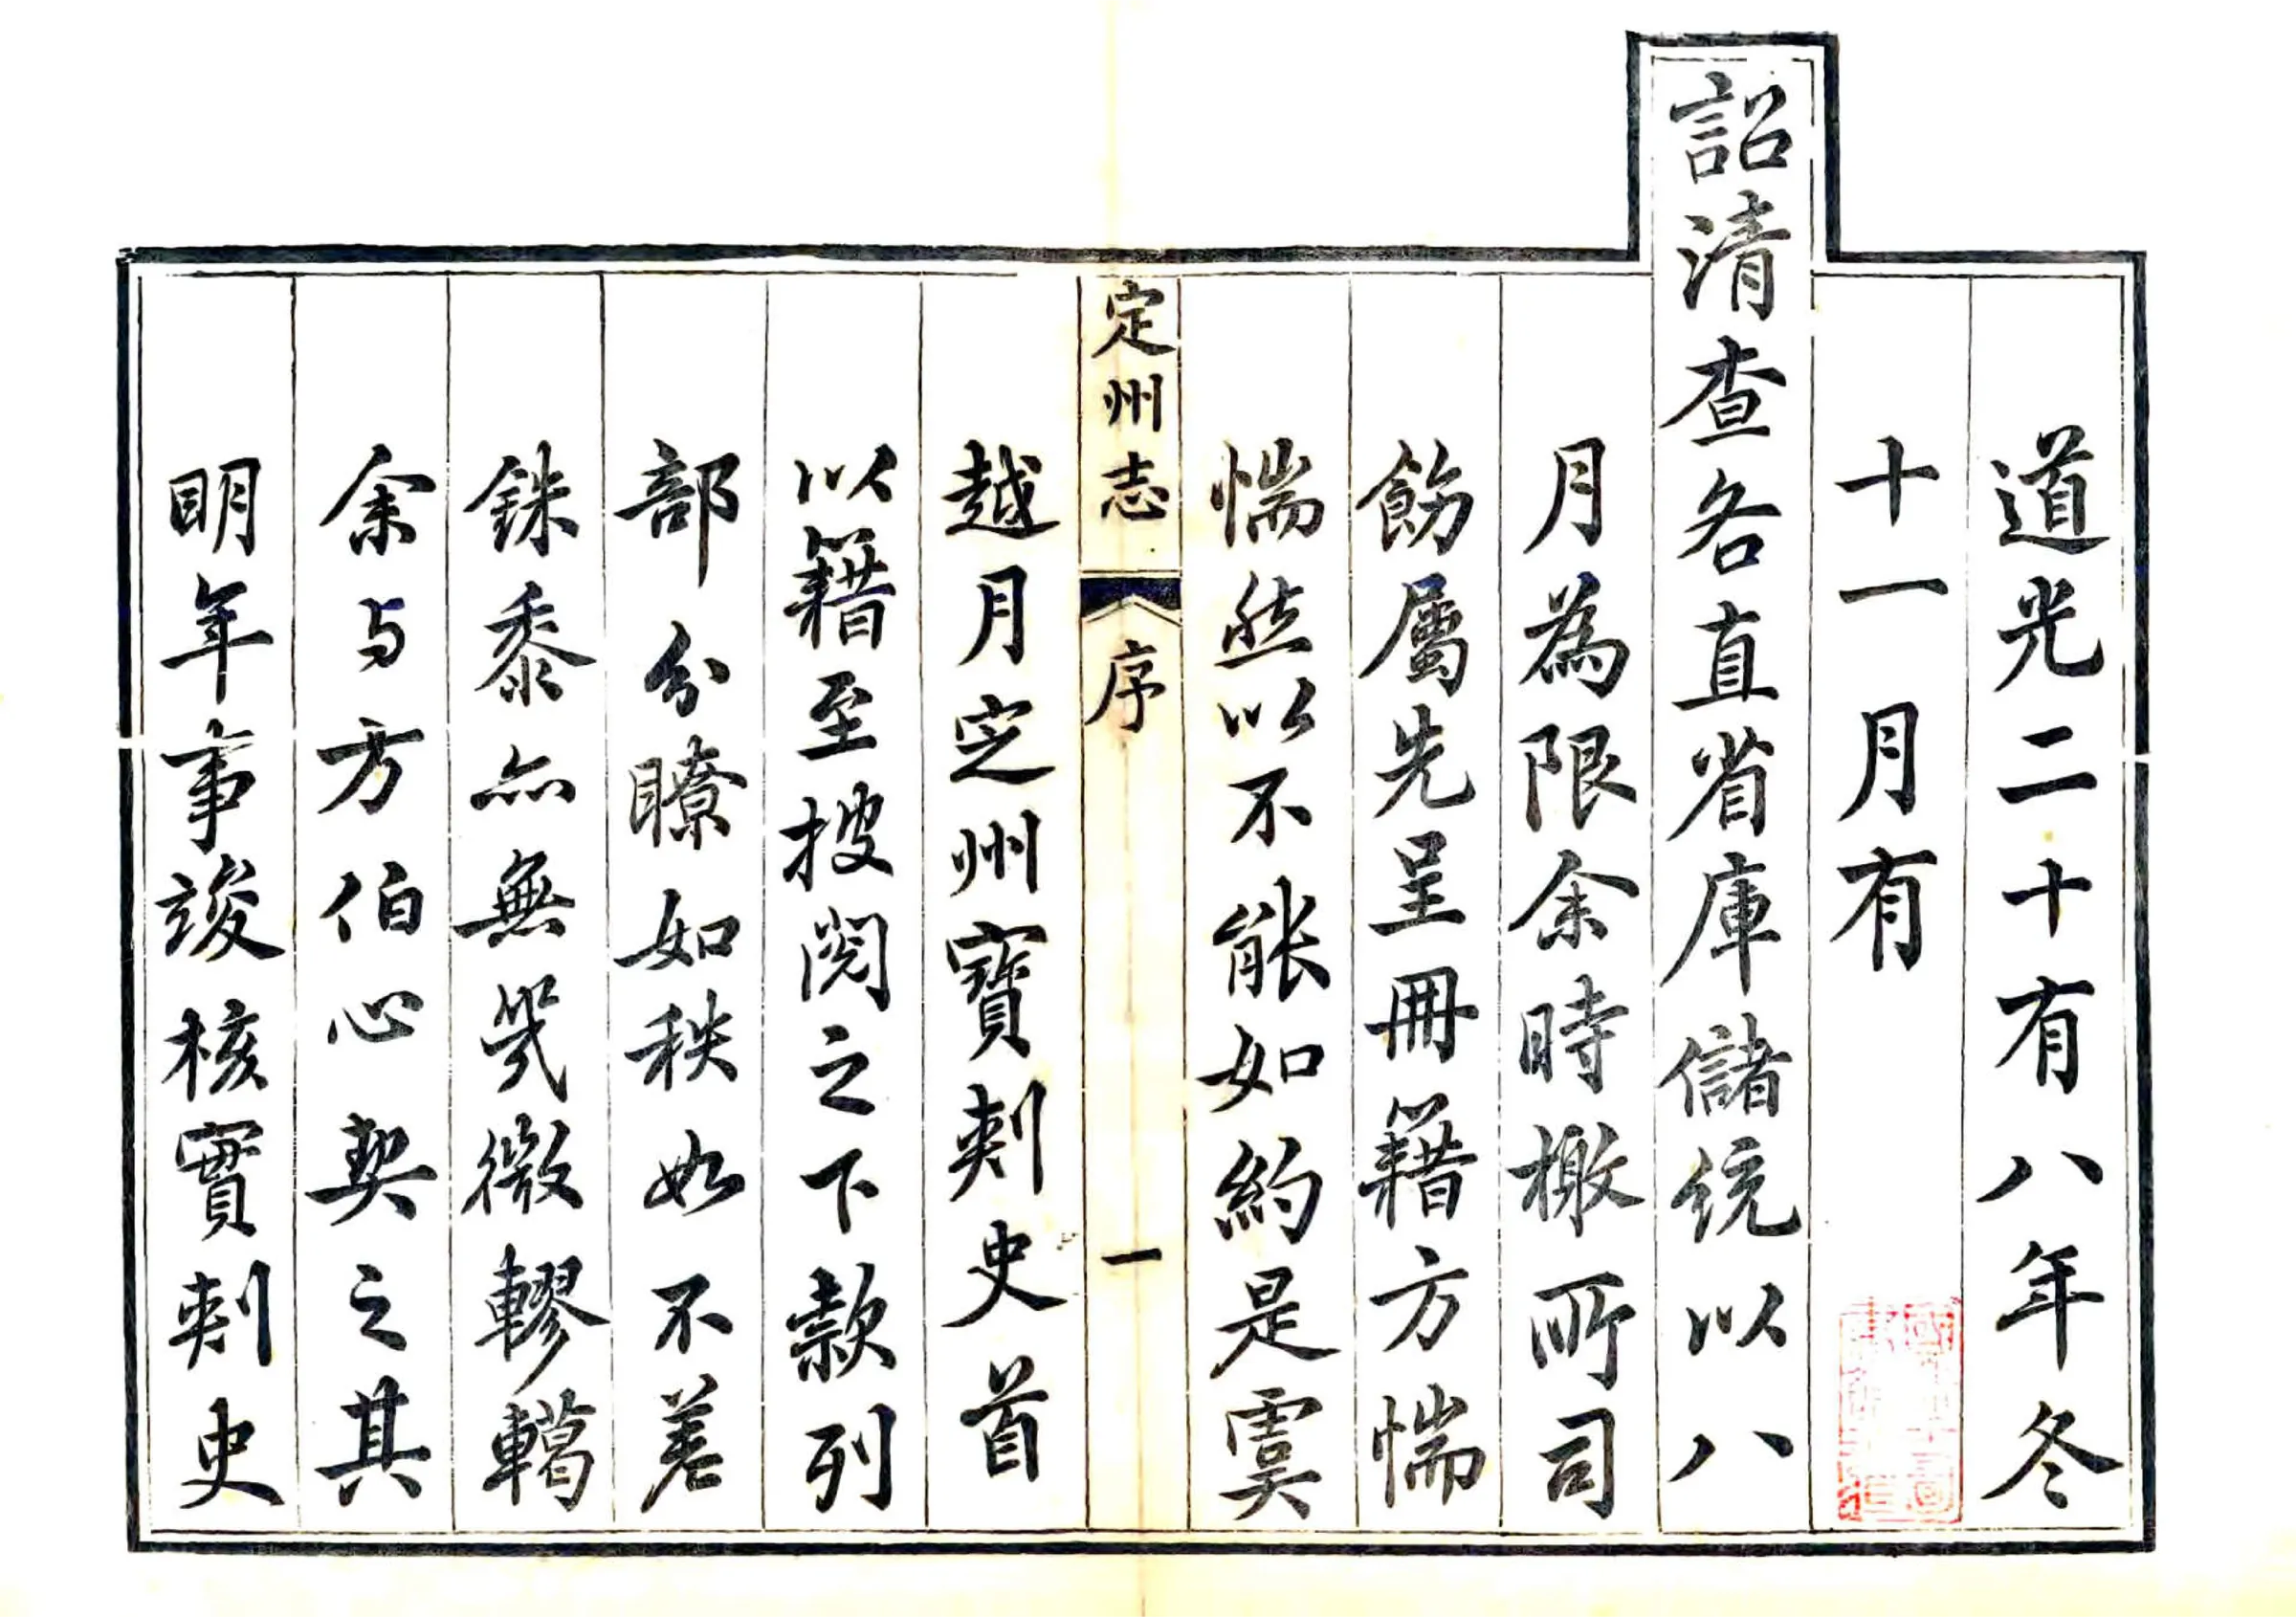 道光二十有八年冬
十一月有
詔清查各直省庫儲統以八
月為限余時檄所司
飭屬先呈冊籍方惴
惴然以不能如約是虞
定州志 序 一
越月定州寶刺史首
以籍至披閱之下款列
部分瞭如秩如不差
銖黍亦無幾微轇轕
余与方伯心契之其
明年事竣核實刺史